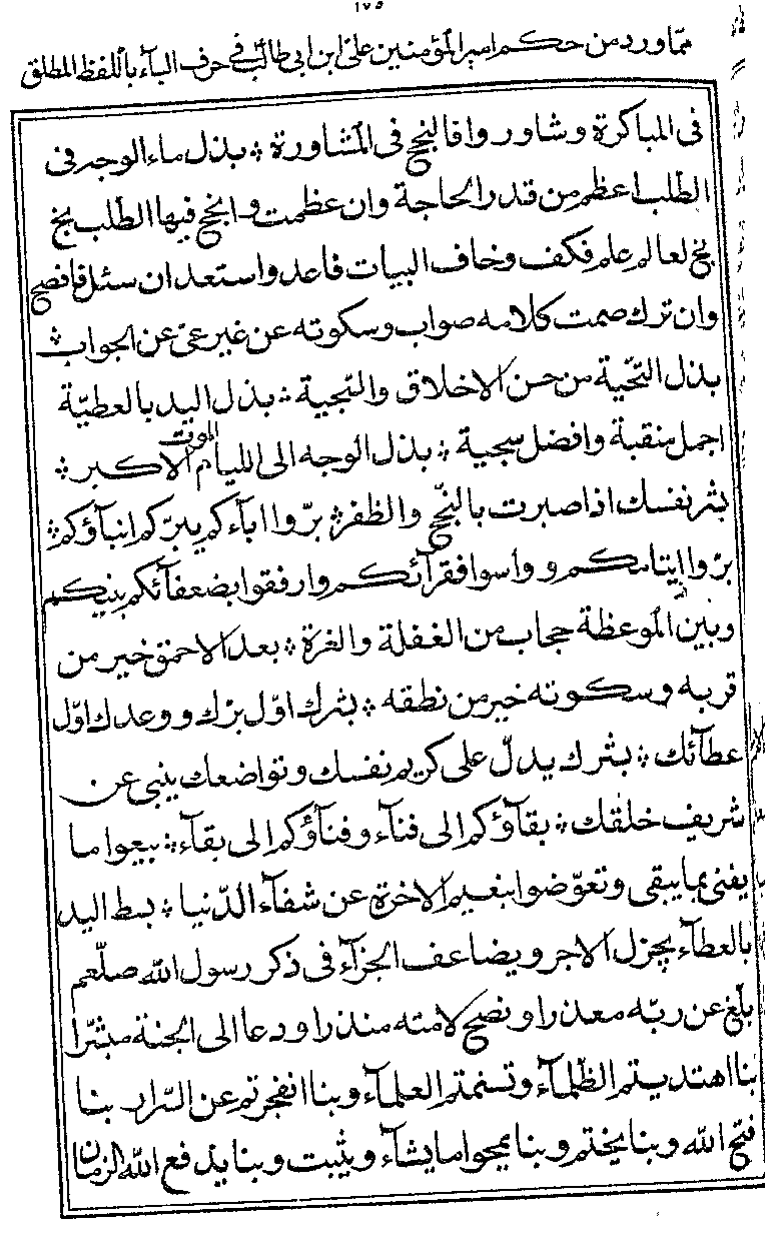 ١٧٥
مما ورد من حكم امير المؤمنين على ابن ابى طالب فى حرف البآء باللفظ المطلق
فى المباكرة وشاوروا فالنجح فى المشاورة ؛ بذل ماء الوجه فى
الطلب اعظم من قدر الحاجة وان عظمت وانجح فيها الطلب بخ
بخ لعالم علم فكف وخاف البيات فاعد واستعد ان سئل فافصح
وان ترك صمت كلامه صواب وسكوته عن غير عىّ عن الجواب ؛
بذل التحّية من حسن الاخلاق والسّجية ؛ بذل اليد بالعطيّة
اجمل منقبة وافضل سجية ؛ بذل الوجه الى الليام الموت الاكبر ؛
بشر نفسك اذا صبرت بالنجّح والظفر ؛ برّوا ابآءكم يبرّكم ابنآؤكم ؛
برّوا ايتامكم وواسوا فقرآئكم وارفقوا بضعفآئكم بينكم
وبين الموعظة حجاب من الغفلة والغرة ؛ بعد الاحمق خير من
قربه وسكوته خير من نطقه ؛ بشرك اوّل برّك ووعدك اوّل
عطآئك ؛ بشرك يدلّ على كريم نفسك وتواضعك ينبى عن
شريف خلقك ؛ بقآؤكم الى فنآء وفنآؤكم الى بقآء ؛ بيعوا ما
يفنى بما يبقى وتعوّضوا بنعيم الاخرة عن شقآء الدّنيا ؛ بسط اليد
بالعطآء يجزل الاجر ويضاعف الجزآء فى ذكر رسول الله صلّعم
بلّغ عن ربّه معذرا ونصح لامته منذرا ودعا الى الجنة مبشّرا
بنا اهتديتم الظّلمآء وتسنمتم العلمآء وبنا انفجرتم عن السّرار بنا
فتح الله وبنا يختم وبنا يمحوا ما يشآء ويثبت وبنا يدفع الله الزمان